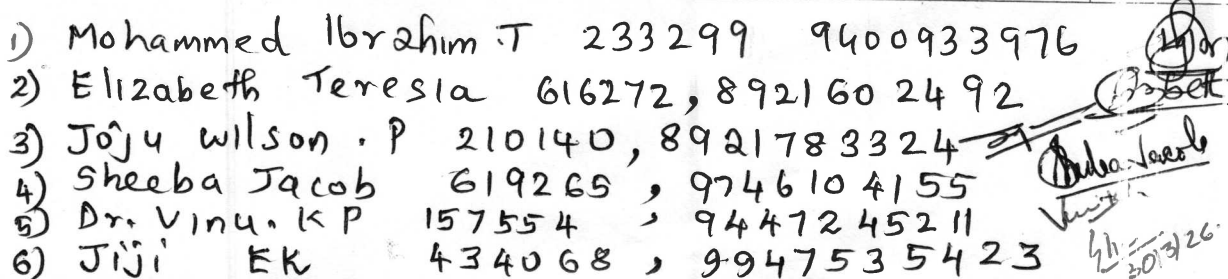 1) Mohammed Ibrahim .T 233299 9400933976
2) Elizabeth Teresia 616272, 8921602492
3) Joju Wilson . P 210140, 8921783324
4) Sheeba Jacob 619265, 9746104155
5) Dr. Vinu. K P 157554, 9447245211
6) Jiji EK 434068, 9947535423
20/3/26.